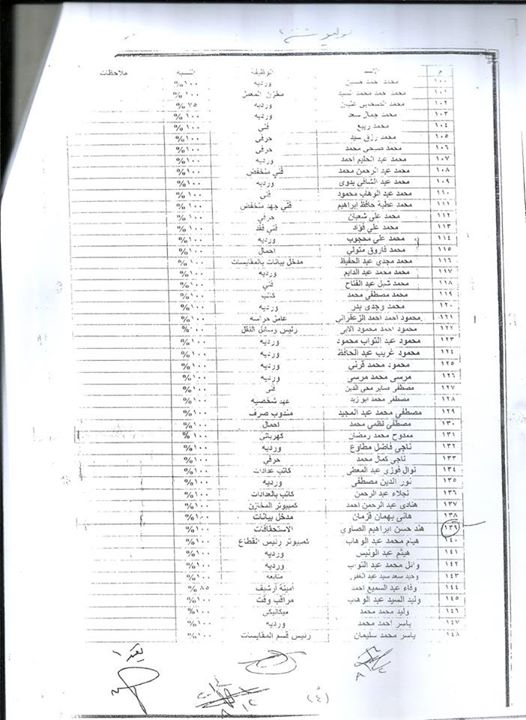 م الاسم الوظيفة النسبة ملاحظات
١٠٠ محمد حمد حسن ورديه ١٠٠%
١٠١ محمد حمد محمد السيد مخزن المعمل ١٠٠%
١٠٢ محمد ورديه ٧٥%
١٠٣ محمد جمال سعد ورديه ١٠٠%
١٠٤ محمد ربيع فني ١٠٠%
١٠٥ محمد رزق سيد حرفي ١٠٠%
١٠٦ محمد صبحي محمد حرفي ١٠٠%
١٠٧ محمد عبد الحليم احمد ورديه ١٠٠%
١٠٨ محمد عبد الرحمن محمد فني منخفض ١٠٠%
١٠٩ محمد عبد الشافي بدوى ورديه ١٠٠%
١١٠ محمد عبد الوهاب محمود فني ١٠٠%
١١١ محمد عطية حافظ ابراهيم فني جهد منخفض ١٠٠%
١١٢ محمد علي شعبان حرفي ١٠٠%
١١٣ محمد علي فؤاد فني فقد ١٠٠%
١١٤ محمد علي محجوب ورديه ١٠٠%
١١٥ محمد فاروق متولي احمال ١٠٠%
١١٦ محمد مجدي عبد الحفيظ مدخل بيانات بالمقايسات ١٠٠%
١١٧ محمد محمد عبد الدايم ورديه ١٠٠%
١١٨ محمد شبل عبد الفتاح فني ١٠٠%
١١٩ محمد مصطفي محمد كاتب ١٠٠%
١٢٠ محمد وجدى بدر ورديه ١٠٠%
١٢١ محمود احمد احمد الزعفرانى عامل حراسه ١٠٠%
١٢٢ محمود احمد محمود الابي رئيس وسائل النقل ١٠٠%
١٢٣ محمود عبد التواب محمود ورديه ١٠٠%
١٢٤ محمود غريب عبد الحافظ ورديه ١٠٠%
١٢٥ محمود محمد قرني ورديه ١٠٠%
١٢٦ مرسى محمد مرسى ورديه ١٠٠%
١٢٧ مصطفي صابر محى الدين فنى ١٠٠%
١٢٨ مصطفي محمد ابوزيد عهد شخصيه ١٠٠%
١٢٩ مصطفى محمد عبد المجيد مندوب صرف ١٠٠%
١٣٠ مصطفي نظمي محمد احمال ١٠٠%
١٣١ ممدوح محمد رمضان كهربائى ١٠٠%
١٣٢ ناجي فاضل مطاوع ورديه ١٠٠%
١٣٣ ناجي كمال محمد حرفي ١٠٠%
١٣٤ نوال فوزى عبد المعطى كاتب عدادات ١٠٠%
١٣٥ نور الدين مصطفى ورديه ١٠٠%
١٣٦ نجلاء عبد الرحمن كاتب بالعدادات ١٠٠%
١٣٧ هنادى عبد الرحمن احمد كمبيوتر المخازن ١٠٠%
١٣٨ هانى قزمان مدخل بيانات ١٠٠%
١٣٩ هند حسن ابراهيم الصاوي الاستحقاقات ١٠٠%
١٤٠ هيام محمد عبد الوهاب كمبيوتر رئيس القطاع ١٠٠%
١٤١ هيثم عبد الونيس ورديه ١٠٠%
١٤٢ وائل محمد عبد التواب ورديه ١٠٠%
١٤٣ وحيد سعد سيد عبد الغفور متابعه ١٠٠%
١٤٤ وفاء عبد السميع احمد أمينة أرشيف ٨٥%
١٤٥ وليد السيد عبد الوهاب مراقب وقت ١٠٠%
١٤٦ وليد محمد محمد ميكانيكى ١٠٠%
١٤٧ ياسر احمد محمد ورديه ١٠٠%
١٤٨ ياسر محمد سليمان رئيس قسم المقايسات ١٠٠%